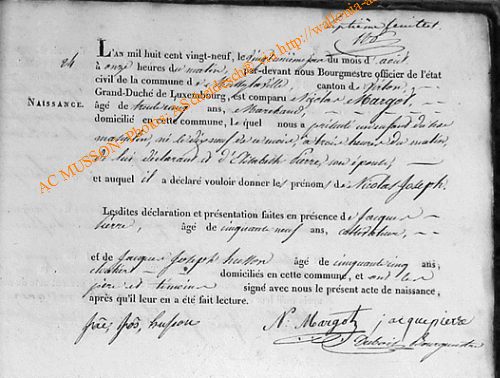 Septième feuillet
24
NAISSANCE.
L'AN mil huit cent vingt-neuf, le vingtième jour du mois d'août
à onze heures du matin, par-devant nous Bourgmestre officier de l'état
civil de la commune de canton de Virton,
Grand-Duché de Luxembourg, est comparu Nicolas Margot,
âgé de ans, Marchand,
domicilié en cette commune, lequel nous a présenté un enfant du sexe
masculin, né le dix neuf de ce mois, à trois heures du matin
de lui déclarant et d'Elisabeth Pierre, son épouse,
et auquel il a déclaré vouloir donner les prénoms de Nicolas Joseph.
Lesdites déclaration et présentation faites en présence de Jacques
Pierre, âgé de cinquante neuf ans, cultivateur,
et de Jacques Joseph husson âgé de cinquante cinq ans,
domiciliés en cette commune, et ont les
père et témoins signé avec nous le présent acte de naissance,
après qu'il leur en a été fait lecture.
husson N. Margot jacque pierre
Bourgmestre
AC MUSSON-Photos